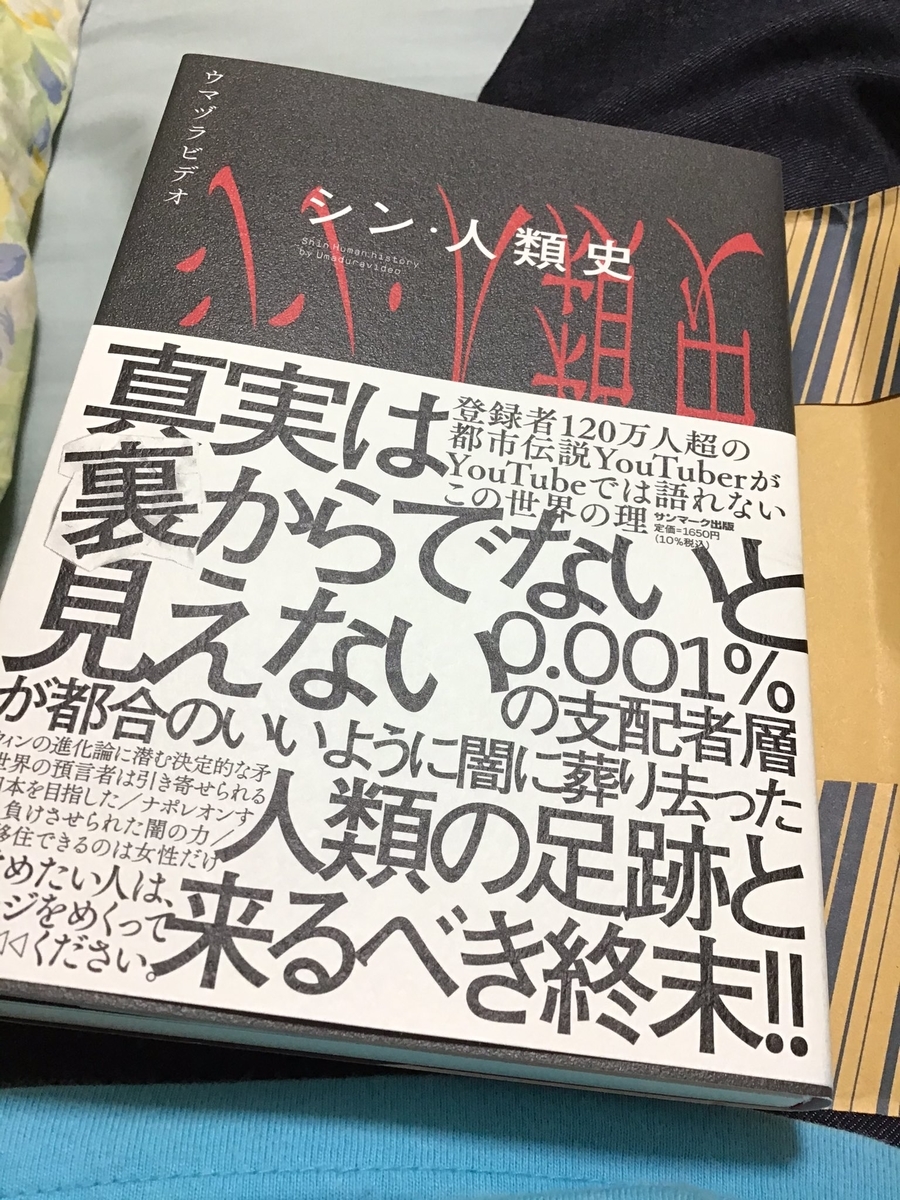 ウマヅラビデオ
シン・人類史
Shin Human history
by Umaduravideo
真実は
裏からでないと
見えない。
登録者120万人超の
都市伝説YouTuberが
YouTubeでは語れない
この世界の理
サンマーク出版
定価=1650円
(10%税込)
0.001%
の支配者層
が都合のいいように闇に葬り去った
人類の足跡と
来るべき終末!!
ウィンの進化論に潜む決定的な矛
世界の預言者は引き寄せられる
日本を目指した/ナポレオンす
負けさせられた闇の力/
移住できるのは女性だけ
めたい人は、
ジをめくって
ください。